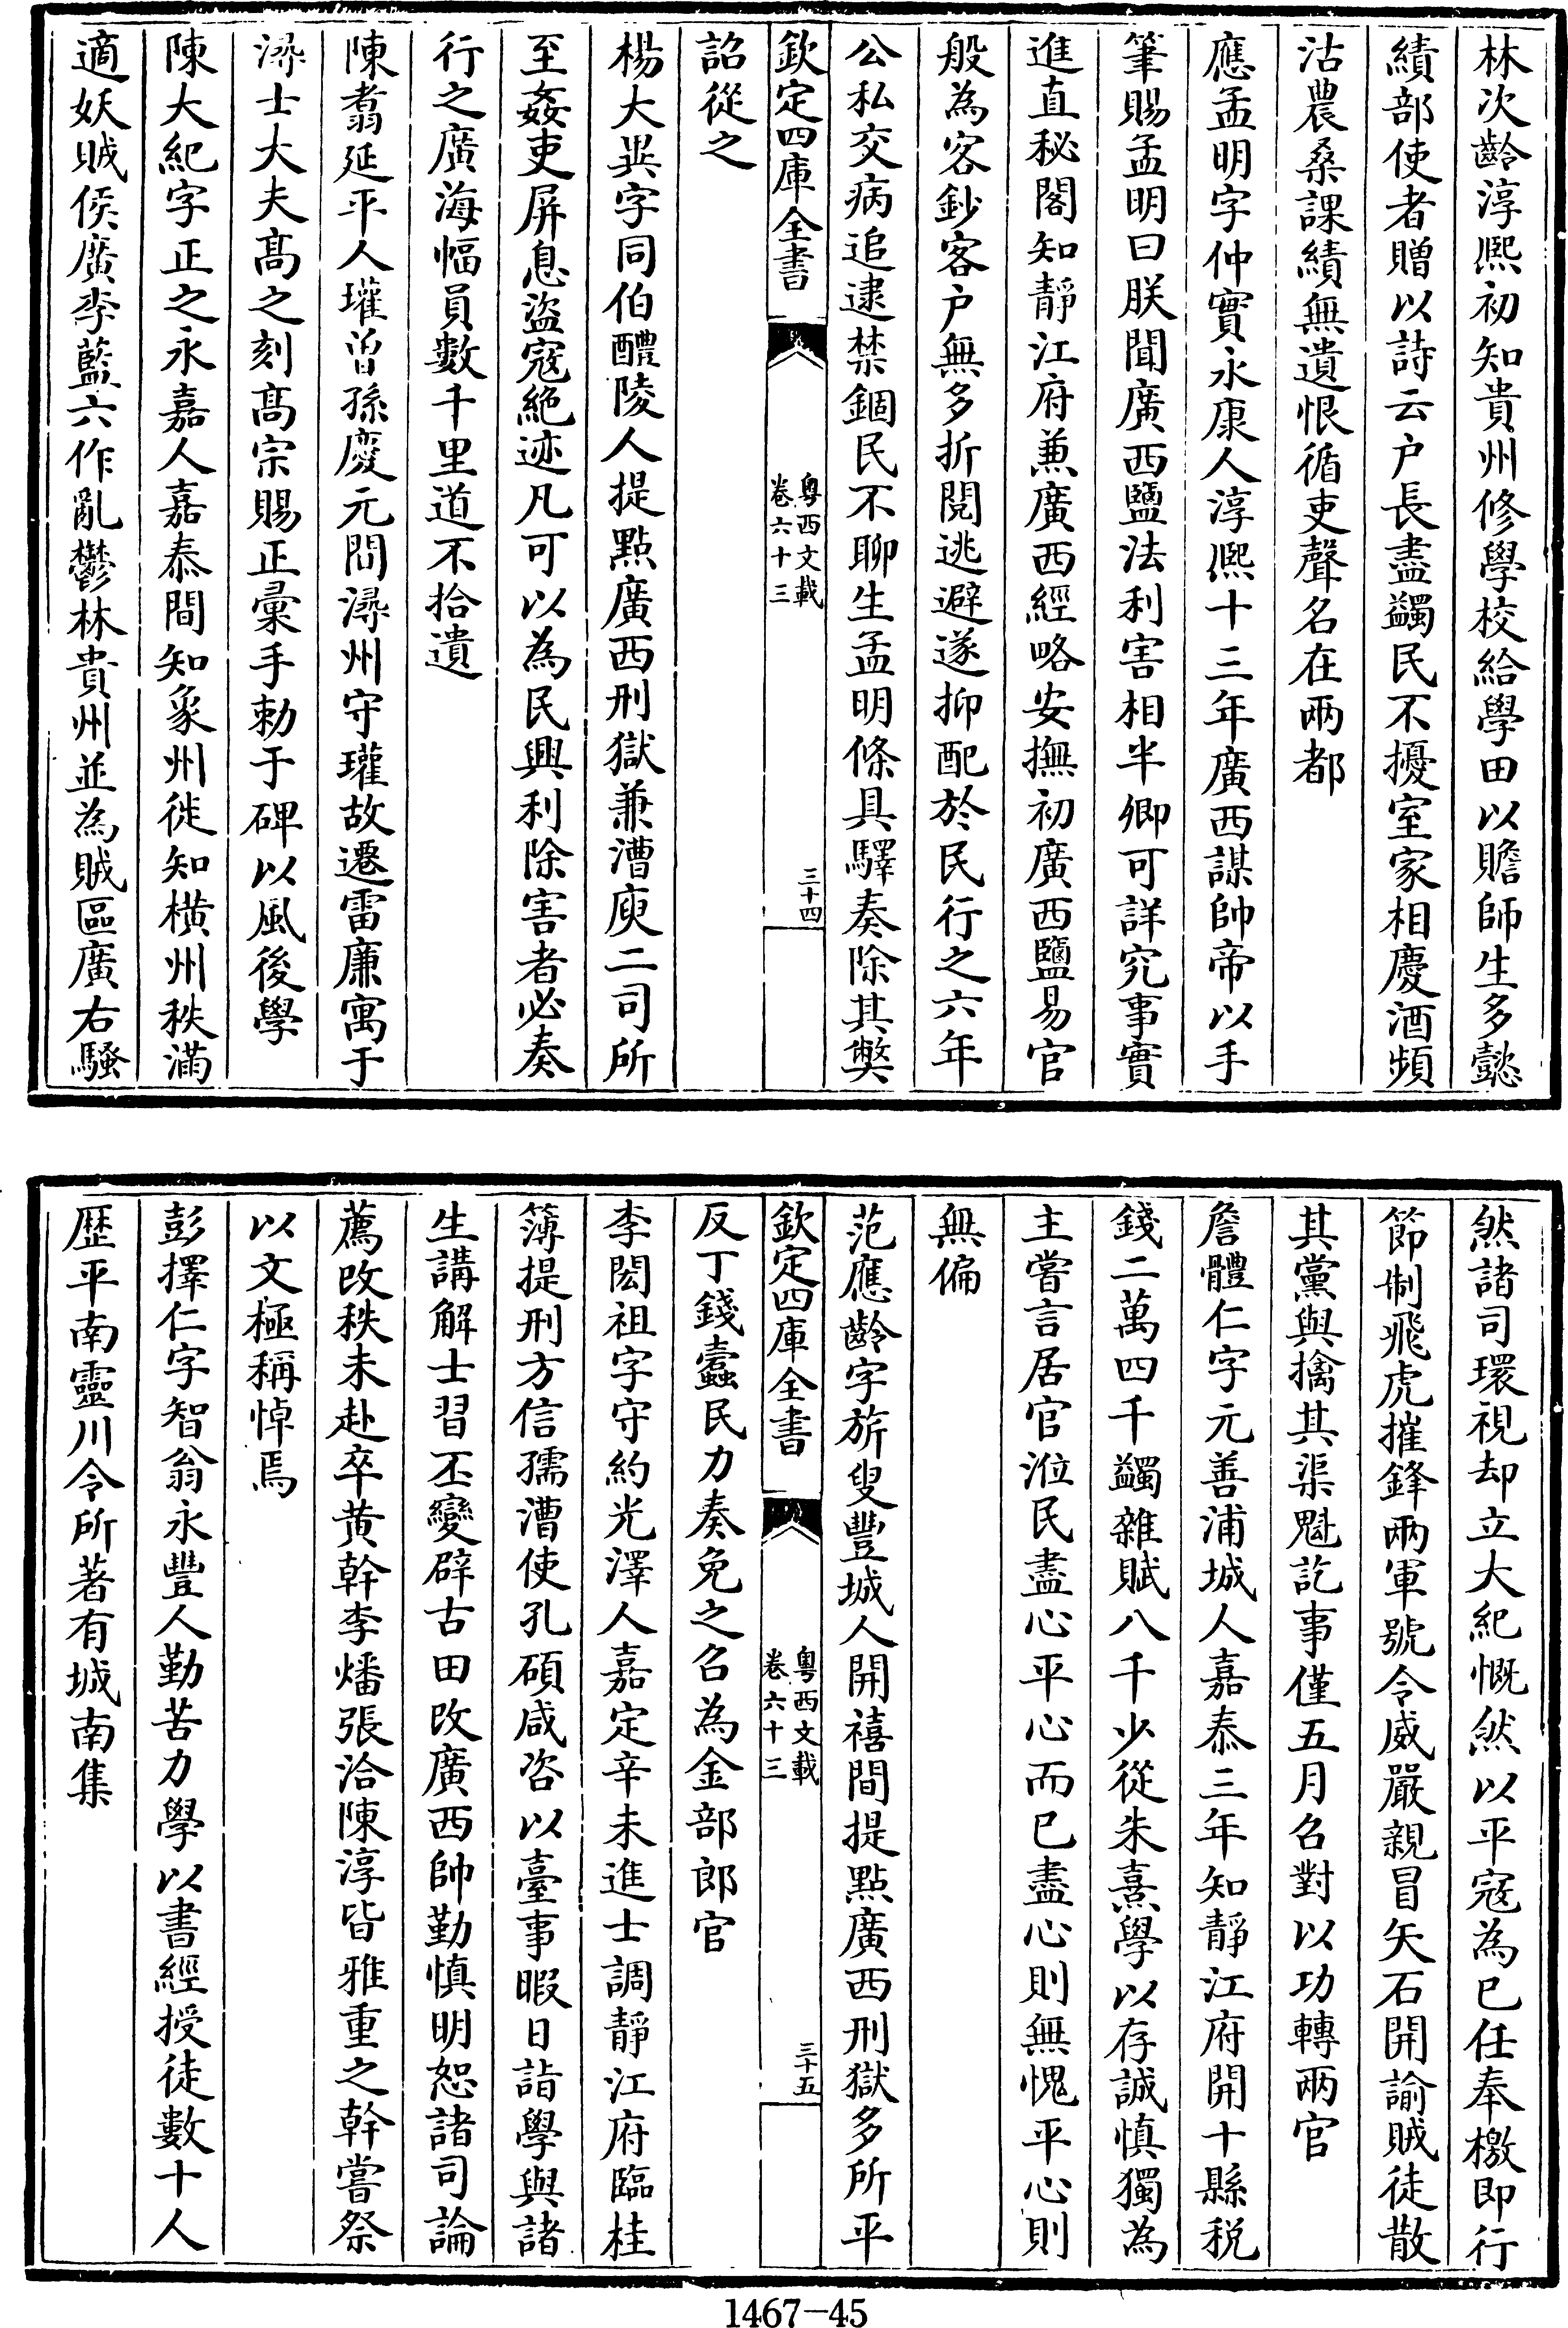 林次齡淳熙初知貴州修學校給學田以贍師生多懿
績部使者贈以詩云户長盡蠲民不擾室家相慶酒頻
沽農桑課績無遺恨循吏聲名在兩都
應孟明字仲實永康人淳熙十三年廣西謀帥帝以手
筆賜孟明曰朕聞廣西鹽法利害相半卿可詳究事實
進直秘閣知靜江府兼廣西經略安撫初廣西鹽易官
般為客鈔客户無多折閱逃避遂抑配於民行之六年
公私交病追逮禁錮民不聊生孟明條具驛奏除其弊
欽定四庫全書
粵西文載
卷六十三
三十四
詔從之
楊大異字同伯醴陵人提點廣西刑獄兼漕庾二司所
至姦吏屏息盜寇絶迹凡可以為民興利除害者必奏
行之廣海幅員數千里道不拾遺
陳翥延平人瓘曾孫慶元間潯州守瓘故遷雷廉寓于
潯士大夫髙之刻髙宗賜正彙手勅于碑以風後學
陳大紀字正之永嘉人嘉泰間知象州徙知横州秩滿
適妖賊侯廣李藍六作亂鬱林貴州並為賊區廣右騷
然諸司環視却立大紀慨然以平寇為已任奉檄即行
節制飛虎摧鋒兩軍號令威嚴親冒矢石開諭賊徒散
其黨與擒其渠魁訖事僅五月召對以功轉兩官
詹體仁字元善浦城人嘉泰三年知靜江府開十縣税
錢二萬四千蠲雜賦八千少從朱熹學以存誠慎獨為
主嘗言居官涖民盡心平心而已盡心則無愧平心則
無偏
范應齡字旂叟豐城人開禧間提點廣西刑獄多所平
欽定四庫全書
粵西文載
卷六十三
三十五
反丁錢蠹民力奏免之召為金部郎官
李閎祖字守約光澤人嘉定辛未進士調靜江府臨桂
簿提刑方信孺漕使孔碩咸咨以臺事暇日詣學與諸
生講解士習丕變辟古田改廣西帥勤慎明恕諸司論
薦改秩未赴卒黄幹李燔張洽陳淳皆雅重之幹嘗祭
以文極稱悼焉
彭擇仁字智翁永豐人勤苦力學以書經授徒數十人
歴平南靈川令所著有城南集
1467-45